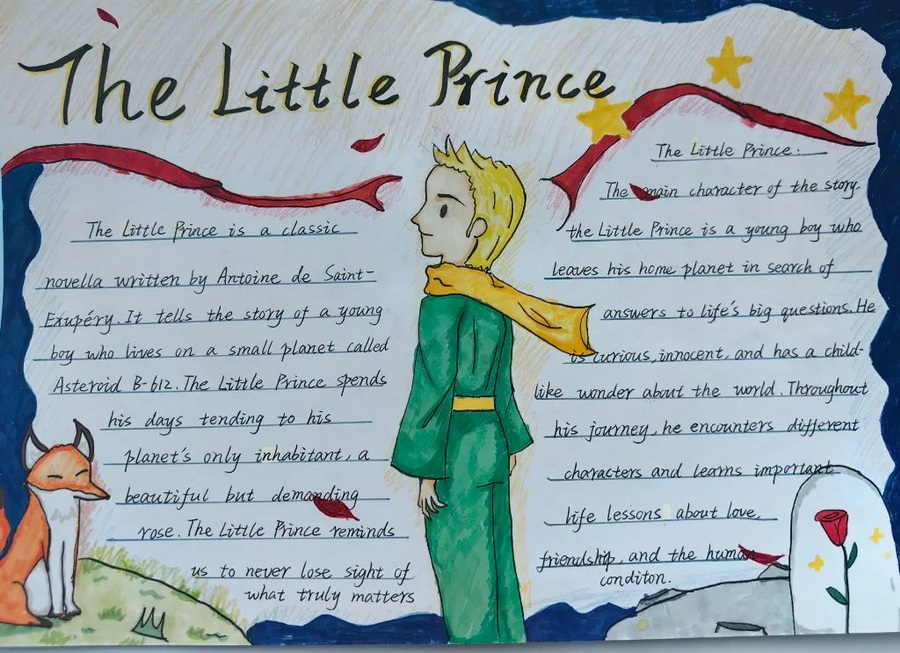 The Little Prince
The Little Prince is a classic
novella written by Antoine de Saint-
Exupéry. It tells the story of a young
boy who lives on a small planet called
Asteroid B-612. The Little Prince spends
his days tending to his
planet's only inhabitant, a
beautiful but demanding
rose. The Little Prince reminds
us to never lose sight of
what truly matters
The Little Prince.
The main character of the story
the Little Prince is a young boy who
leaves his home planet in search of
answers to life's big questions. He
is curious, innocent, and has a child-
like wonder about the world. Throughout
his journey, he encounters different
characters and learns important
life lessons about love,
friendship, and the human
conditon.